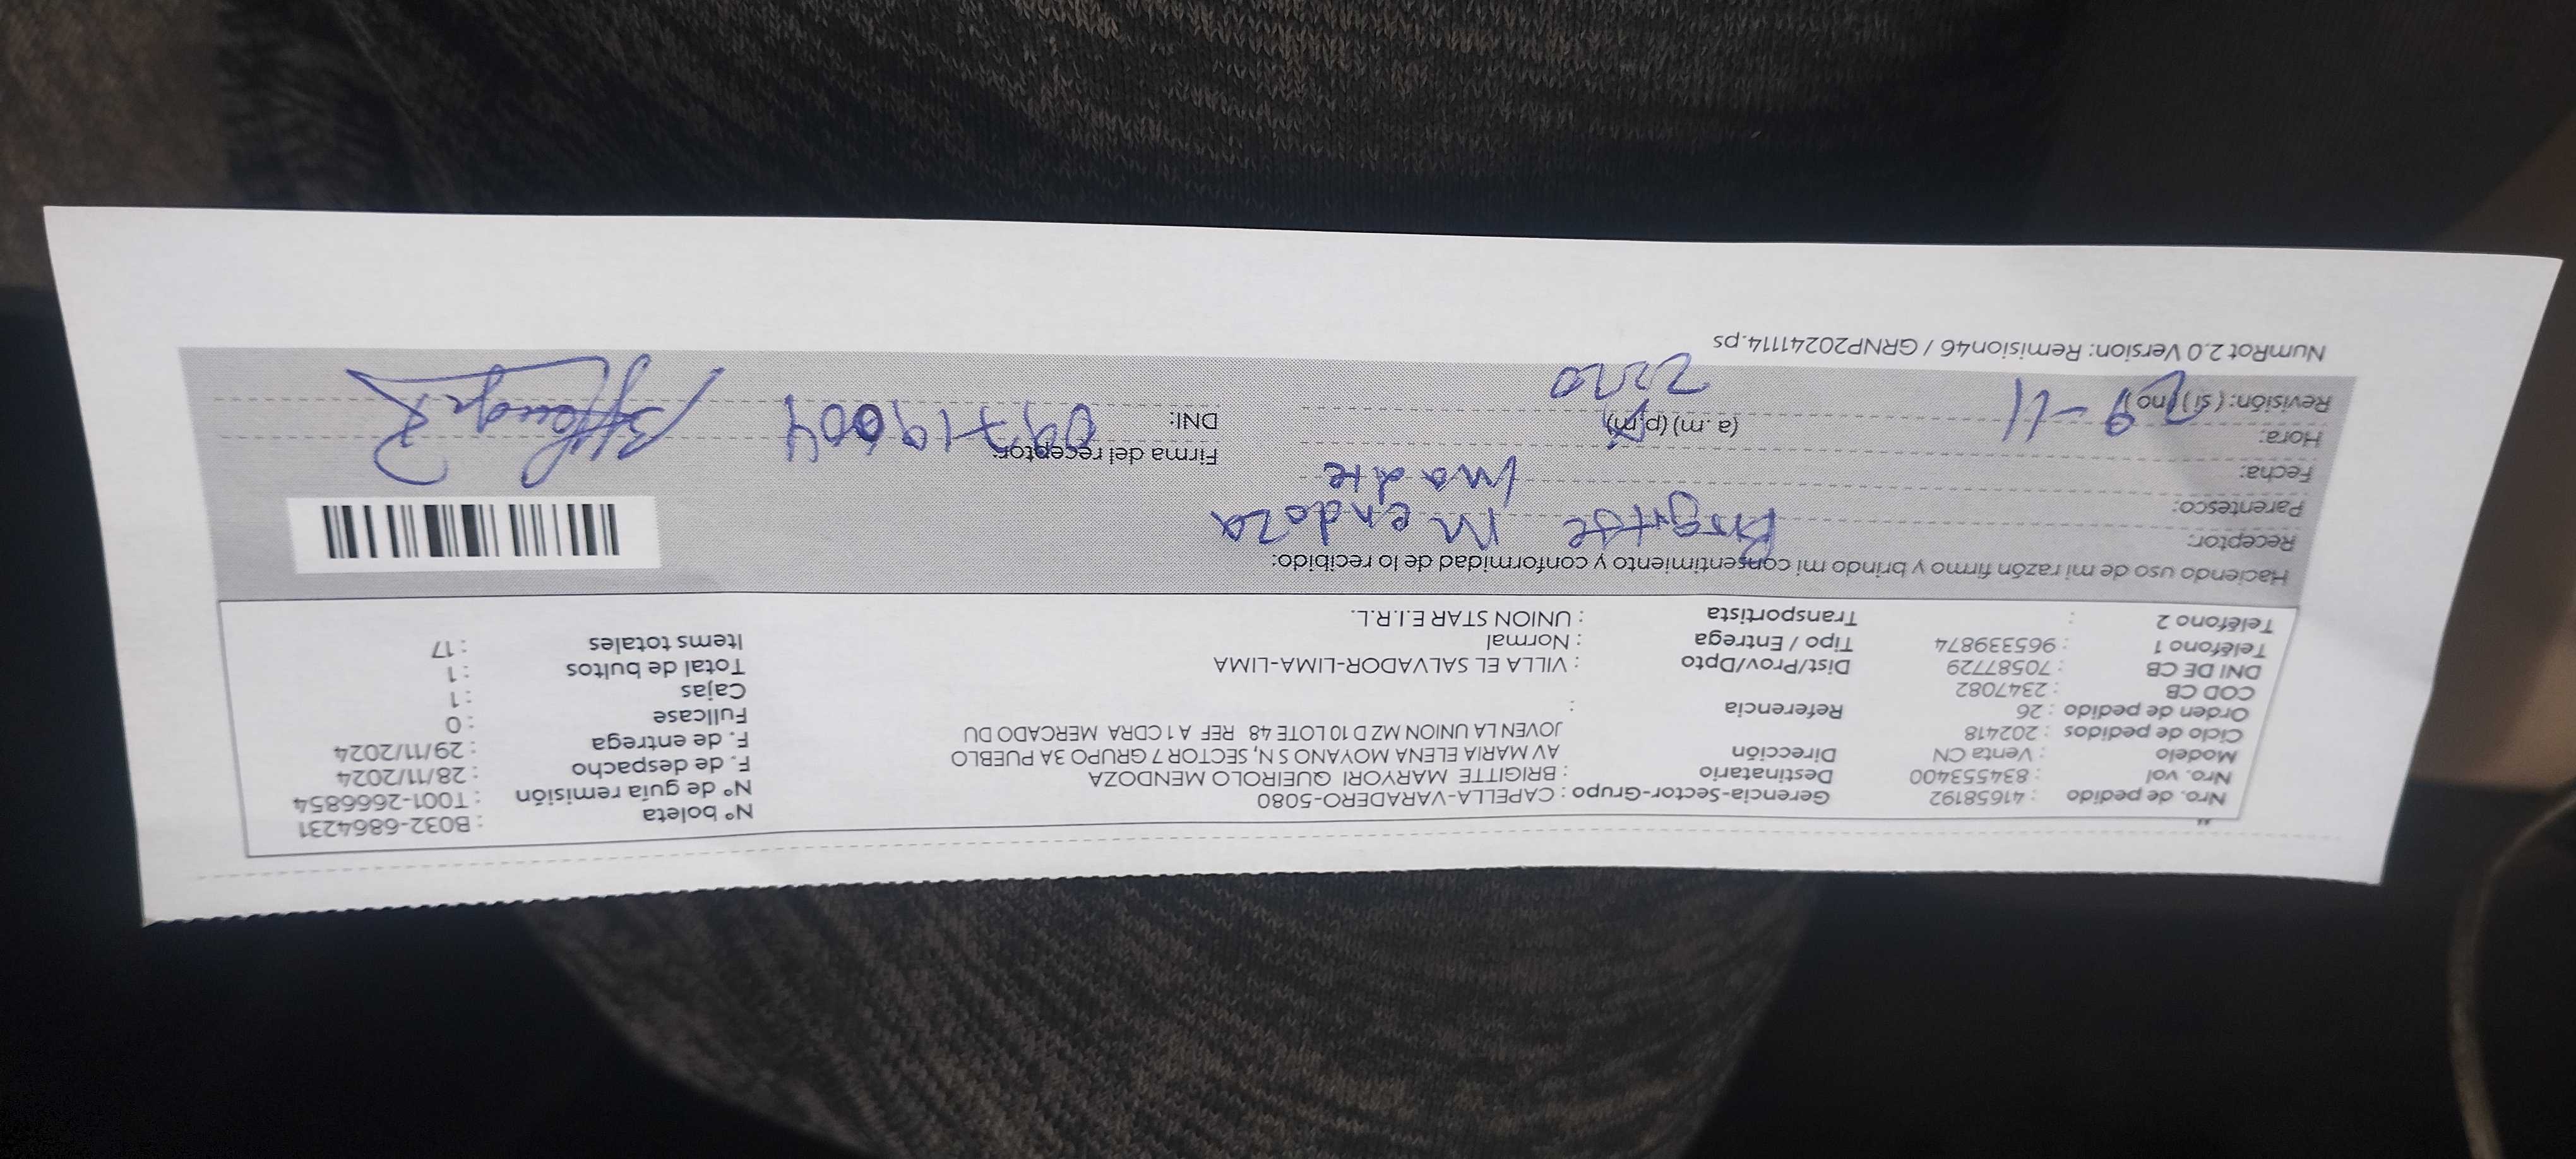 Nro. de pedido : 41658192 Gerencia-Sector-Grupo : CAPELLA-VARADERO-5080 N° boleta : B032-6864231
Nro. vol : 834553400 Destinatario : BRIGITTE MARYORI QUEIROLO MENDOZA N° de guía remisión : T001-2666854
Modelo : Venta CN Dirección AV MARIA ELENA MOYANO S N, SECTOR 7 GRUPO 3A PUEBLO F. de despacho : 28/11/2024
Ciclo de pedidos : 202418 JOVEN LA UNION MZ D 10 LOTE 48 REF A 1 CDRA MERCADO DU F. de entrega : 29/11/2024
Orden de pedido : 26 Referencia : Fullcase : 0
COD CB : 2347082 Cajas : 1
DNI DE CB : 70587729 Dist/Prov/Dpto : VILLA EL SALVADOR-LIMA-LIMA Total de bultos : 1
Teléfono 1 : 965339874 Tipo / Entrega : Normal Items totales : 17
Teléfono 2 : Transportista : UNION STAR E.I.R.L.
Haciendo uso de mi razón firmo y brindo mi consentimiento y conformidad de lo recibido:
Receptor: Mendoza
Parentesco: madre
Fecha: Firma del receptor:
Hora: (a.m) (p.m) DNI: 09719004
Revisión: ( si ) ( no )
NumRot 2.0 Version: Remision46 / GRNP20241114.ps